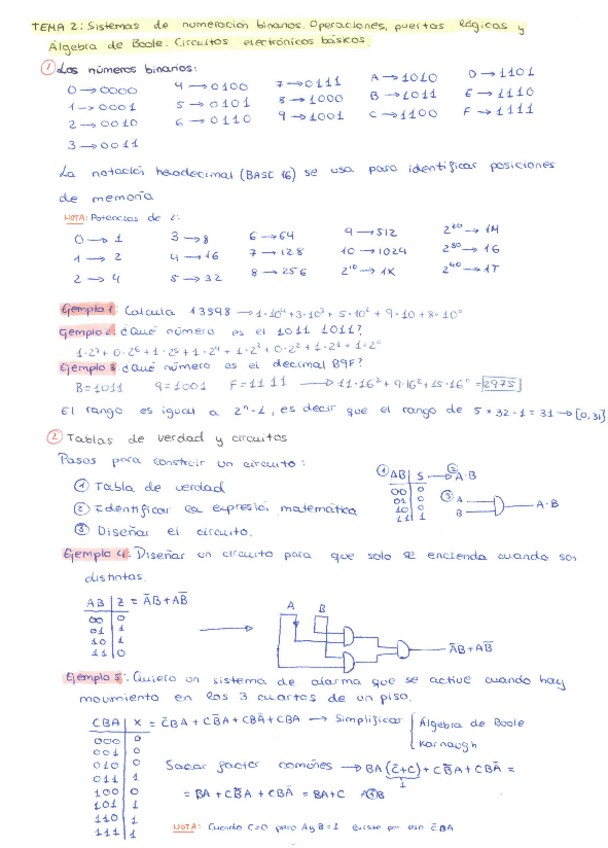 TEMA 2: Sistemas de numeracion binarios. Operaciones, puertas lógicas y
Álgebra de Boole. Circuitos electrónicos básicos.
① Los números binarios:
0→0000 4→0100 7→0111 A→1010 D→1101
1→0001 5→0101 8→1000 B→1011 E→1110
2→0010 6→0110 9→1001 C→1100 F→1111
3→0011
La notación hexadecimal (BASE 16) se usa para identificar posiciones
de memoria
NOTA: Potencias de 2:
0→1 3→8 6→64 9→512 2²⁰→1M
1→2 4→16 7→128 10→1024 2³⁰→1G
2→4 5→32 8→256 2¹⁰→1K 2⁴⁰→1T
Ejemplo 1: Calcula 13598 → 1·10⁴+3·10³+5·10²+9·10+8·10⁰
Ejemplo 2: ¿Qué número es el 1011 1011?
1·2⁷+0·2⁶+1·2⁵+1·2⁴+1·2³+0·2²+1·2¹+1·2⁰
Ejemplo 3: ¿Qué número es el decimal B9F?
B=1011 9=1001 F=1111 → 11·16²+9·16¹+15·16⁰=2975
El rango es igual a 2ⁿ-1, es decir que el rango de 5 → 32-1=31→[0,31]
② Tablas de verdad y circuitos
Pasos para construir un circuito:
① Tabla de verdad
② Identificar la expresión matemática
③ Diseñar el circuito.
① AB | S → ② A·B
00 | 0
01 | 0
10 | 0
11 | 1
③ A B A·B
Ejemplo 4: Diseñar un circuito para que solo se encienda cuando son
distintas.
AB | Z = A̅B+AB̅
00 | 0
01 | 1
10 | 1
11 | 0
A B
A̅B+AB̅
Ejemplo 5: Quiero un sistema de alarma que se active cuando hay
movimiento en los 3 cuartos de un piso.
CBA | X = C̅BA + CB̅A + CBA̅ + CBA → Simplificar { Álgebra de Boole
Karnaugh
000 | 0
001 | 0
010 | 0
011 | 1
100 | 0
101 | 1
110 | 1
111 | 1
Sacar factor comúnes → BA(C̅+C) + CB̅A + CBA̅ =
1
= BA + CB̅A + CBA̅ = BA+C A⊕B
NOTA: Cuando C=0 para A y B=1 existe por eso C̅BA